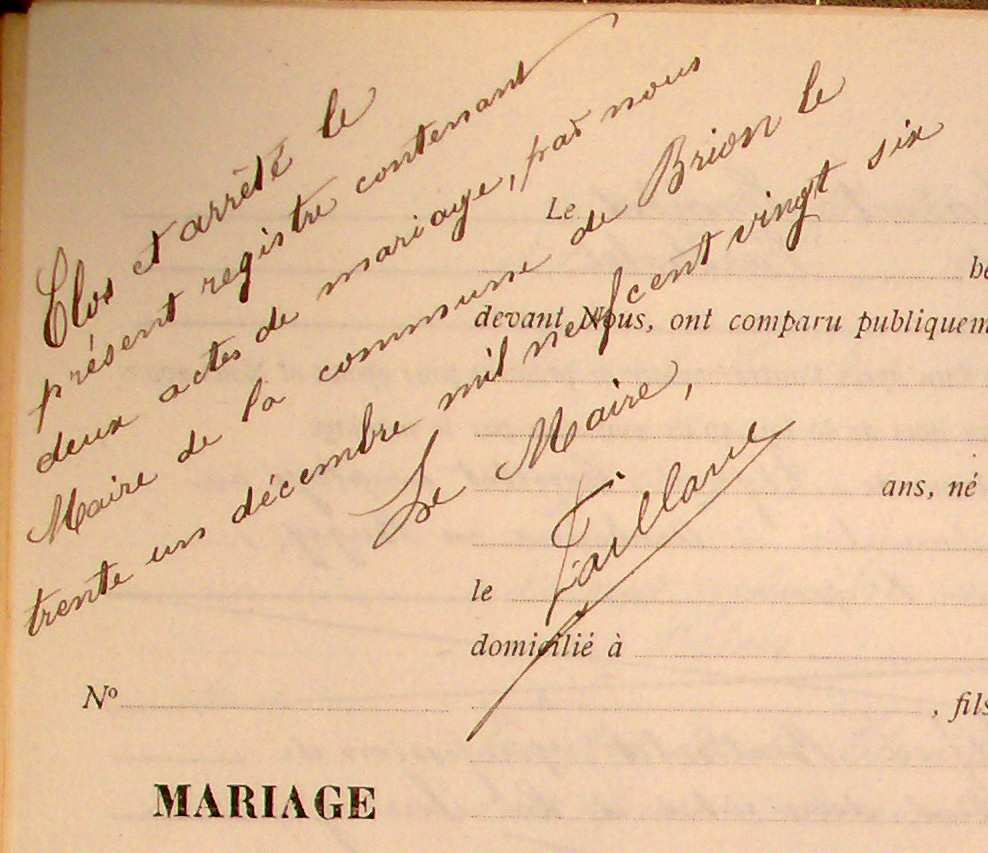 Clos et arrêté le
présent registre contenant
deux actes de mariage, par nous
Maire de la commune de Brion le
trente un décembre mil neuf cent vingt six
Le Maire,
Le
devant Nous, ont comparu publiquem
ans, né
le
domicilié à
No
, fils
MARIAGE